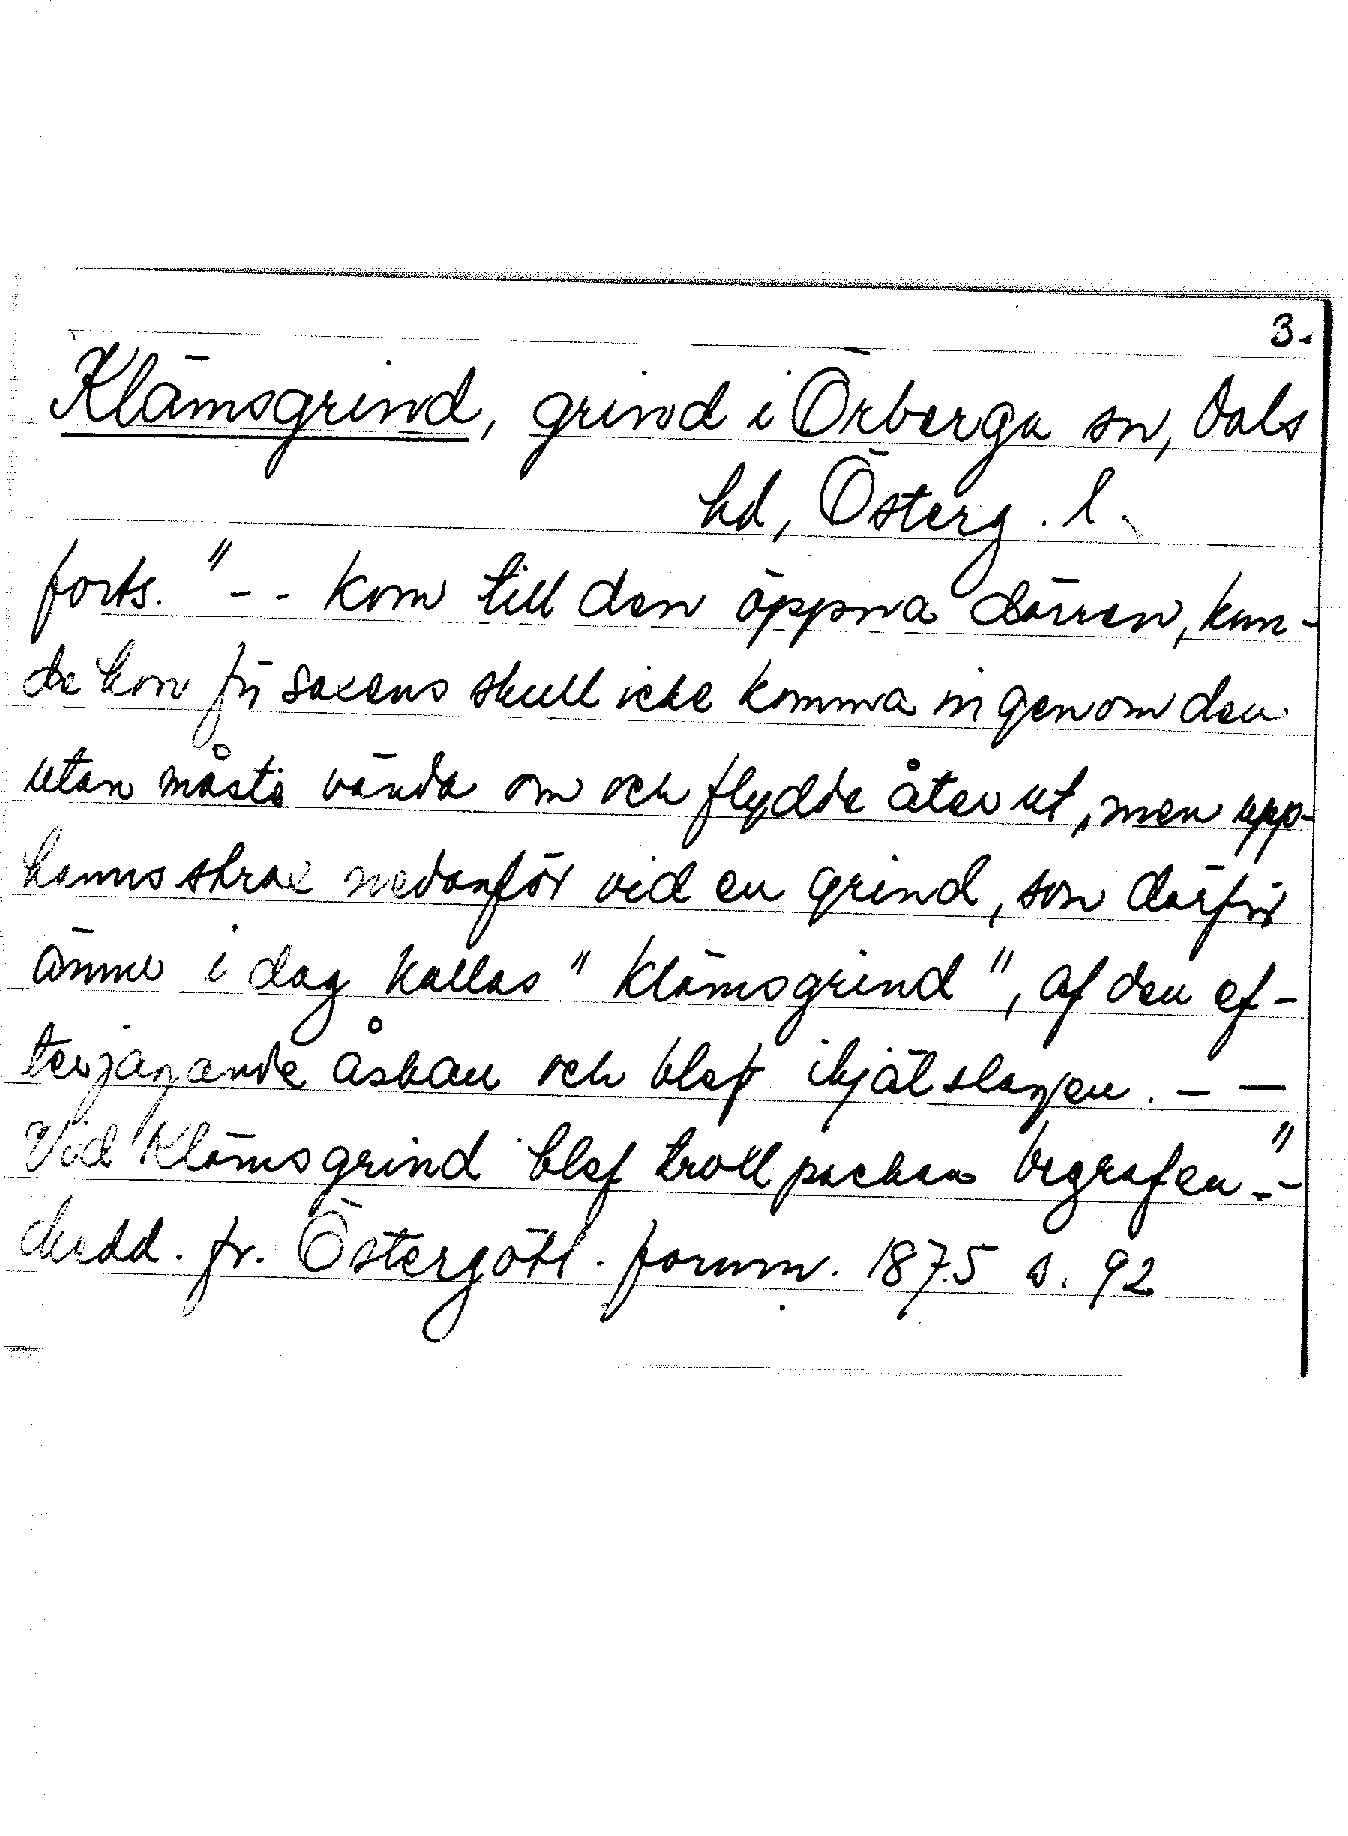 3.
Klämsgrind, grind i Örberga sn, Dals
hd, Österg. l.
forts. "-- kom till den öppna dörren, kun-
de hon för saxens skull icke komma in genom den
utan måste vända om och flydde åter ut, men upp-
hanns strax nedanför vid en grind, som därför
ännu i dag kallas "Klämsgrind", af den ef-
terjagande åskan och blef ihjälslagen. — —
Vid Klämsgrind blef trollpackan begrafen.–"
Medd. fr. Östergötl. fornm. 1875 s. 92